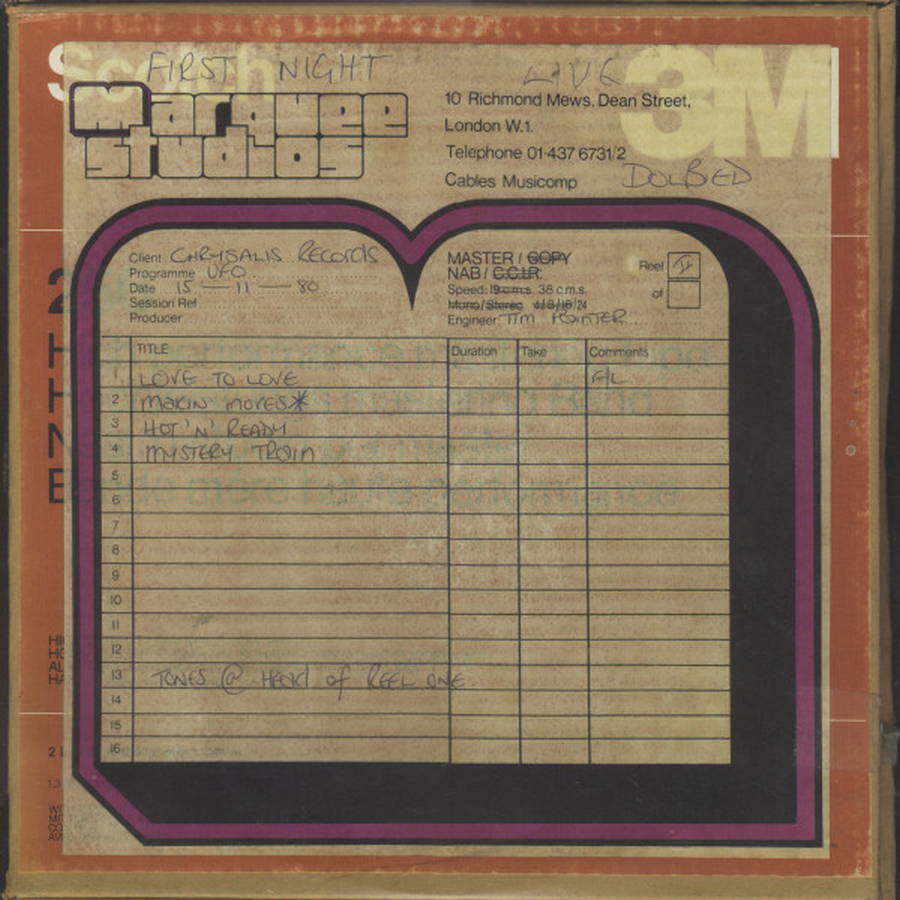 Scotch 3M
FIRST NIGHT LIVE
marquee
studios
10 Richmond Mews, Dean Street,
London W.1.
Telephone 01-437 6731/2
Cables Musicomp
DOLBIED
Client CHRYSALIS RECORDS
Programme UFO.
Date 15 — 11 — 80
Session Ref
Producer
MASTER / COPY
NAB / C.C.I.R.
Speed: 19 c.m.s. 38 c.m.s.
Mono/Stereo 4/8/16/24
Engineer TIM POINTER
Reel II
of
TITLE Duration Take Comments
LOVE TO LOVE F/L
2 MAKIN MOVES*
3 HOT 'N' READY
4 MYSTERY TRAIN
5
6
7
8
9
10
11
12
13 TONES @ HEAD of REEL ONE.
14
15
16